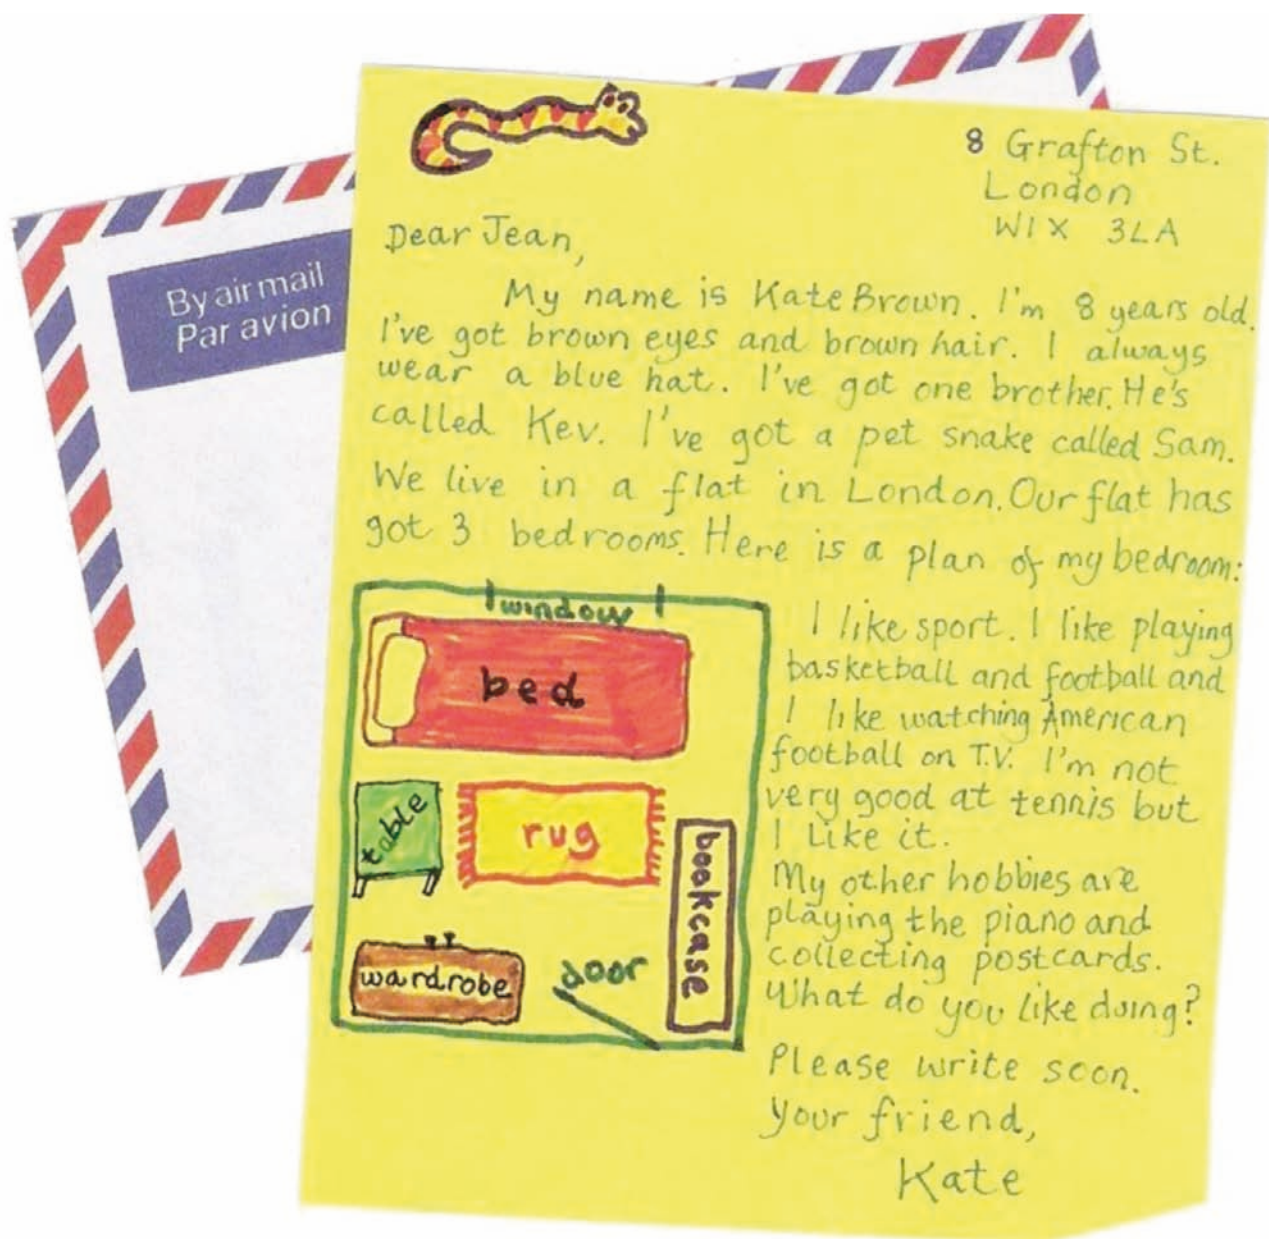 8 Grafton St.
London
W1X 3LA
By air mail
Par avion
Dear Jean,
My name is Kate Brown. I'm 8 years old.
I've got brown eyes and brown hair. I always
wear a blue hat. I've got one brother. He's
called Kev. I've got a pet snake called Sam.
We live in a flat in London. Our flat has
got 3 bedrooms. Here is a plan of my bedroom:
window
bed
table
rug
bookcase
wardrobe
door
I like sport. I like playing
basketball and football and
I like watching American
football on T.V. I'm not
very good at tennis but
I Like it.
My other hobbies are
playing the piano and
collecting postcards.
What do you like doing?
Please write soon.
Your friend,
Kate